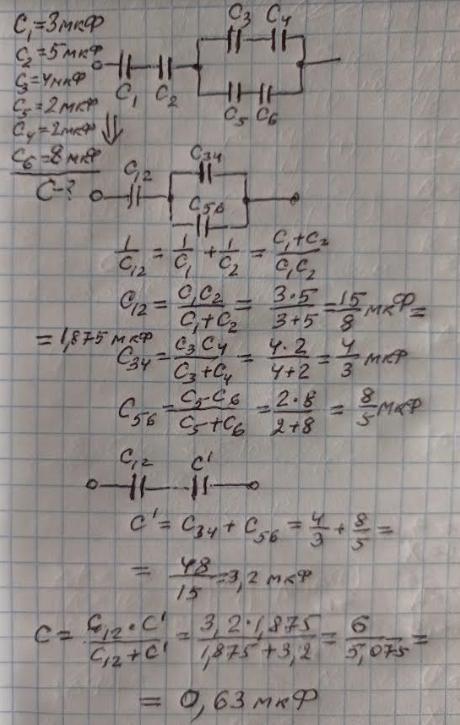 C₁=3мкФ
C₂=5мкФ
C₃=4мкФ
C₅=2мкФ
C₄=2мкФ
C₆=8мкФ
C-?
C₃ C₄
C₁ C₂
C₅ C₆
C₁₂ C₃₄
C₅₆
1/C₁₂ = 1/C₁ + 1/C₂ = (C₁+C₂)/(C₁C₂)
C₁₂ = (C₁C₂)/(C₁+C₂) = (3·5)/(3+5) = 15/8 мкФ =
= 1,875 мкФ
C₃₄ = (C₃C₄)/(C₃+C₄) = (4·2)/(4+2) = 4/3 мкФ
C₅₆ = (C₅·C₆)/(C₅+C₆) = (2·8)/(2+8) = 8/5 мкФ
C₁₂ C'
C' = C₃₄ + C₅₆ = 4/3 + 8/5 =
= 48/15 = 3,2 мкФ
C = (C₁₂·C')/(C₁₂+C') = (3,2·1,875)/(1,875+3,2) = 6/5,075 =
= 0,63 мкФ